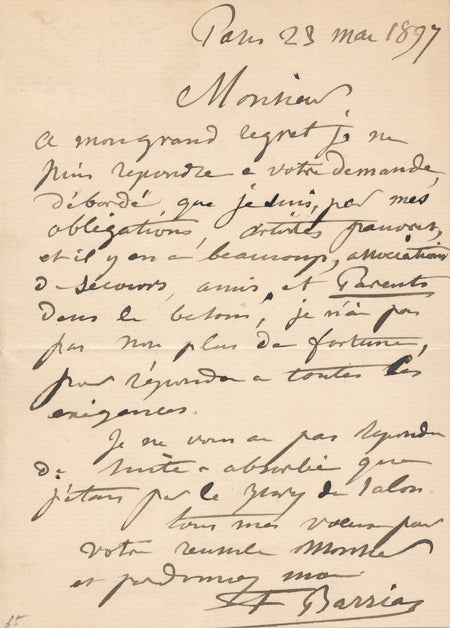 Paris 23 mai 1897
Monsieur
a mon grand regret je ne
puis repondre a votre demande,
débordé que je suis, par mes
obligations, artistes pauvres,
et il y en a beaucoup, associations
de secours, amis, et Parents
dans le besoin, je n'ai pas
pas non plus de fortune,
pour répondre a toutes les
exigences.
Je ne vous ai pas repondu
de suite absorbé que
j'étais par le Jury du Salon
tous mes voeux pour
votre reussite Monsieur
et pardonnez moi
F Barrias
65